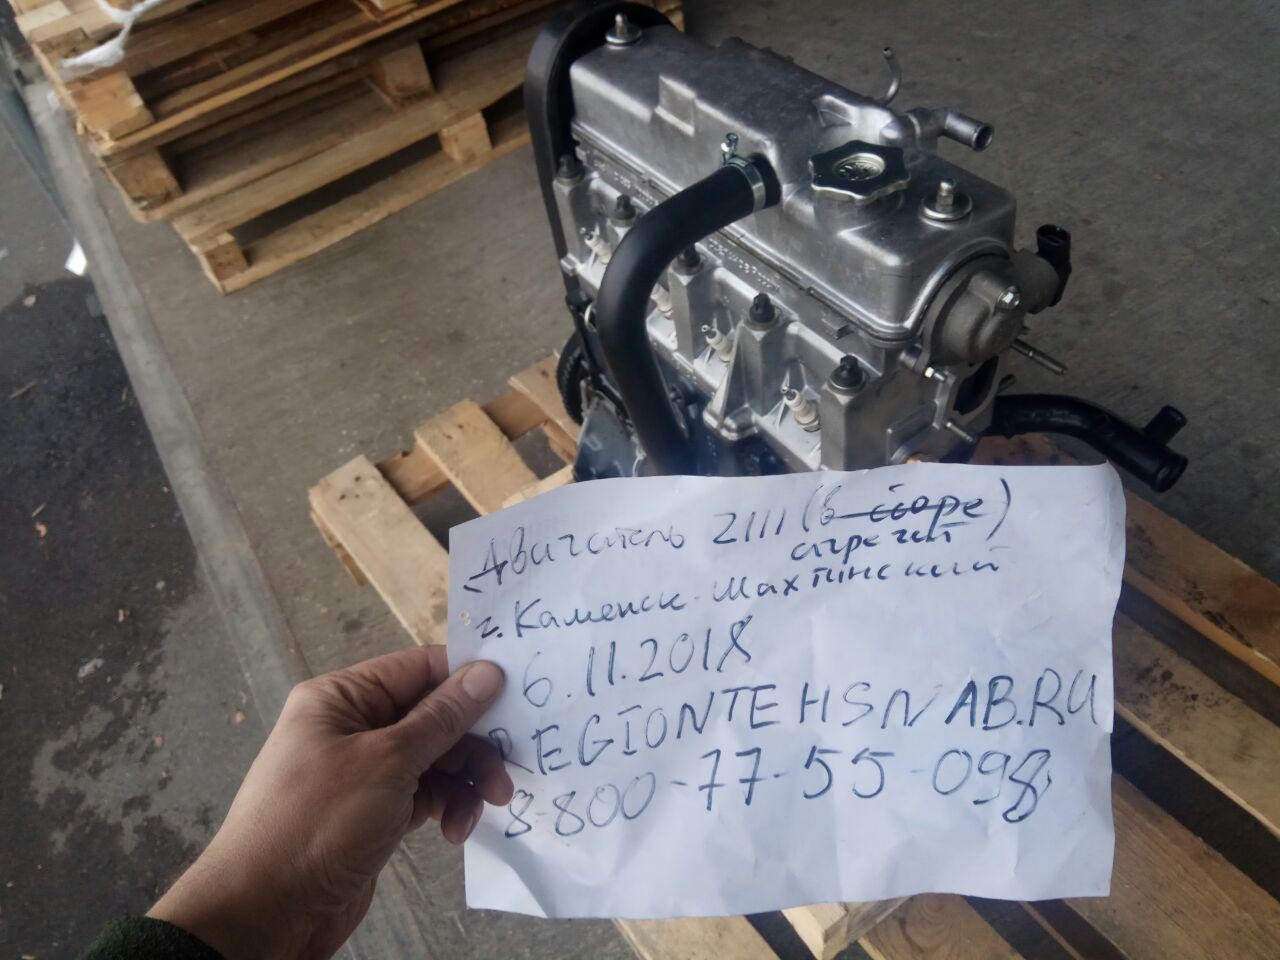 Двигатель 2111 (в сборе)
агрегат
г. Каменск-Шахтинский
6.11.2018
REGIONTEHSNAB.RU
8-800-77-55-098